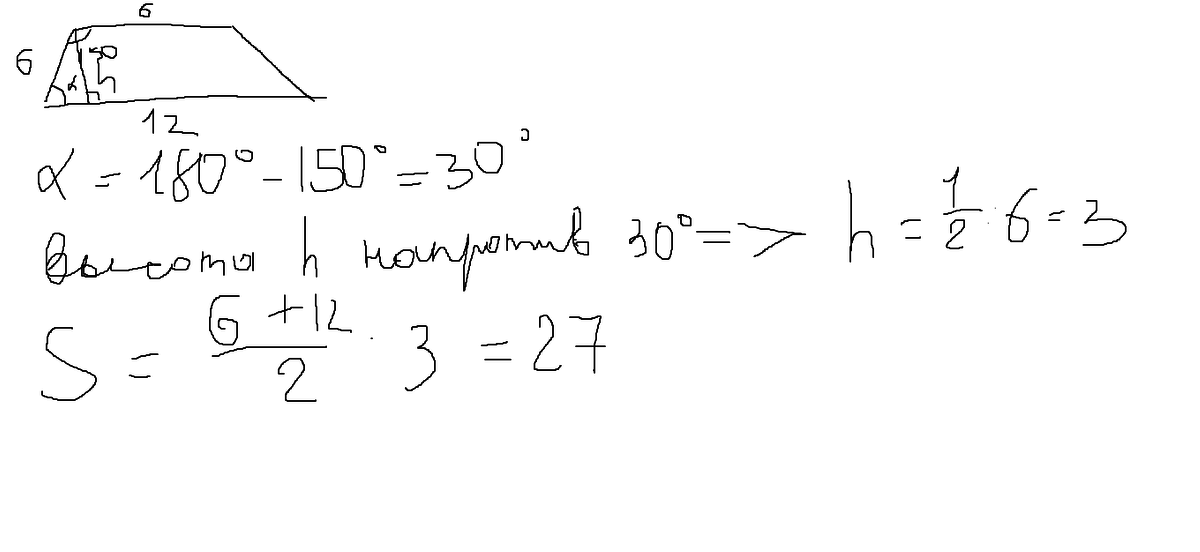 6
6
α
h
12
α = 180° - 150° = 30°
высота h напротив 30° => h = 1/2 · 6 = 3
S = (6 + 12)/2 · 3 = 27